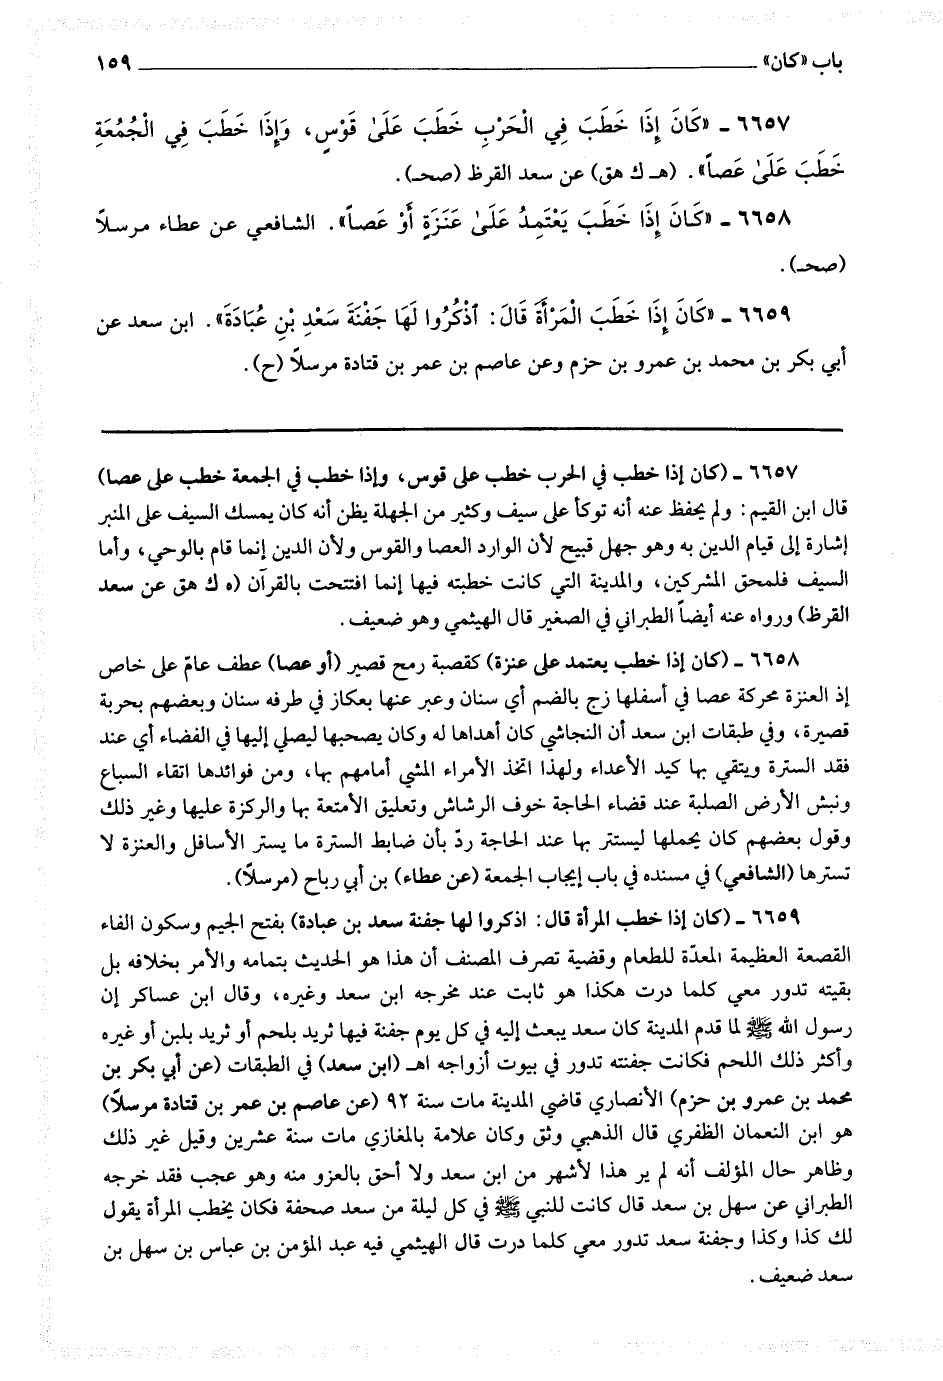 باب «كان» ١٥٩
٦٦٥٧ ـ «كَانَ إِذَا خَطَبَ فِي الْحَرْبِ خَطَبَ عَلَىٰ قَوْسٍ، وَإِذَا خَطَبَ فِي الْجُمُعَةِ
خَطَبَ عَلَىٰ عَصاً». (هـ ك هق) عن سعد القرظ (صحـ).
٦٦٥٨ ـ «كَانَ إِذَا خَطَبَ يَعْتَمِدُ عَلَىٰ عَنَزَةٍ أَوْ عَصاً». الشافعي عن عطاء مرسلاً
(صحـ).
٦٦٥٩ ـ «كَانَ إِذَا خَطَبَ المَرْأَةَ قَالَ: ٱذْكُرُوا لَهَا جَفْنَةَ سَعْدِ بْنِ عُبَادَةَ». ابن سعد عن
أبي بكر بن محمد بن عمرو بن حزم وعن عاصم بن عمر بن قتادة مرسلاً (ح).
٦٦٥٧ ـ (كان إذا خطب في الحرب خطب على قوس، وإذا خطب في الجمعة خطب على عصا)
قال ابن القيم: ولم يحفظ عنه أنه توكأ على سيف وكثير من الجهلة يظن أنه كان يمسك السيف على المنبر
إشارة إلى قيام الدين به وهو جهل قبيح لأن الوارد العصا والقوس ولأن الدين إنما قام بالوحي، وأما
السيف فلمحق المشركين، والمدينة التي كانت خطبته فيها إنما افتتحت بالقرآن (ه ك هق عن سعد
القرظ) ورواه عنه أيضاً الطبراني في الصغير قال الهيثمي وهو ضعيف.
٦٦٥٨ ـ (كان إذا خطب يعتمد على عنزة) كقصبة رمح قصير (أو عصا) عطف عامّ على خاص
إذ العنزة محركة عصا في أسفلها زج بالضم أي سنان وعبر عنها بعكاز في طرفه سنان وبعضهم بحربة
قصيرة، وفي طبقات ابن سعد أن النجاشي كان أهداها له وكان يصحبها ليصلي إليها في الفضاء أي عند
فقد السترة ويتقي بها كيد الأعداء ولهذا اتخذ الأمراء المشي أمامهم بها، ومن فوائدها اتقاء السباع
ونبش الأرض الصلبة عند قضاء الحاجة خوف الرشاش وتعليق الأمتعة بها والركزة عليها وغير ذلك
وقول بعضهم كان يحملها ليستتر بها عند الحاجة ردّ بأن ضابط السترة ما يستر الأسافل والعنزة لا
تسترها (الشافعي) في مسنده في باب إيجاب الجمعة (عن عطاء) بن أبي رباح (مرسلاً).
٦٦٥٩ ـ (كان إذا خطب المرأة قال: اذكروا لها جفنة سعد بن عبادة) بفتح الجيم وسكون الفاء
القصعة العظيمة المعدّة للطعام وقضية تصرف المصنف أن هذا هو الحديث بتمامه والأمر بخلافه بل
بقيته تدور معي كلما درت هكذا هو ثابت عند مخرجه ابن سعد وغيره، وقال ابن عساكر إن
رسول الله ﷺ لما قدم المدينة كان سعد يبعث إليه في كل يوم جفنة فيها ثريد بلحم أو ثريد بلبن أو غيره
وأكثر ذلك اللحم فكانت جفنته تدور في بيوت أزواجه اهـ (ابن سعد) في الطبقات (عن أبي بكر بن
محمد بن عمرو بن حزم) الأنصاري قاضي المدينة مات سنة ٩٢ (عن عاصم بن عمر بن قتادة مرسلاً)
هو ابن النعمان الظفري قال الذهبي وثق وكان علامة بالمغازي مات سنة عشرين وقيل غير ذلك
وظاهر حال المؤلف أنه لم ير هذا لأشهر من ابن سعد ولا أحق بالعزو منه وهو عجب فقد خرجه
الطبراني عن سهل بن سعد قال كانت للنبي ﷺ في كل ليلة من سعد صحفة فكان يخطب المرأة يقول
لك كذا وكذا وجفنة سعد تدور معي كلما درت قال الهيثمي فيه عبد المؤمن بن عباس بن سهل بن
سعد ضعيف.